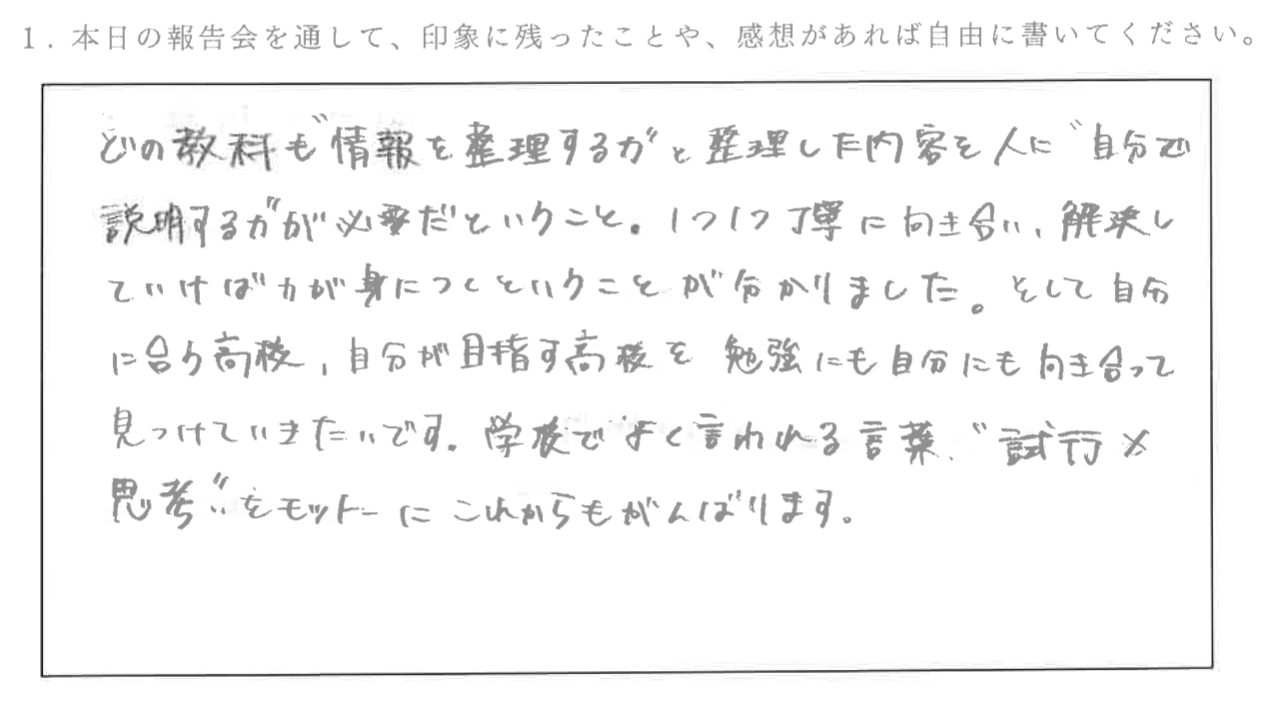 1. 本日の報告会を通して、印象に残ったことや、感想があれば自由に書いてください。
どの教科も〝情報を整理する力〟と整理した内容を人に〝自分で
説明する力〟が必要だということ。1つ1つ丁寧に向き合い、解決し
ていけば力が身につくということが分かりました。そして自分
に合う高校、自分が目指す高校を勉強にも自分にも向き合って
見つけていきたいです。学校でよく言われる言葉、〝試行×
思考〟をモットーにこれからもがんばります。